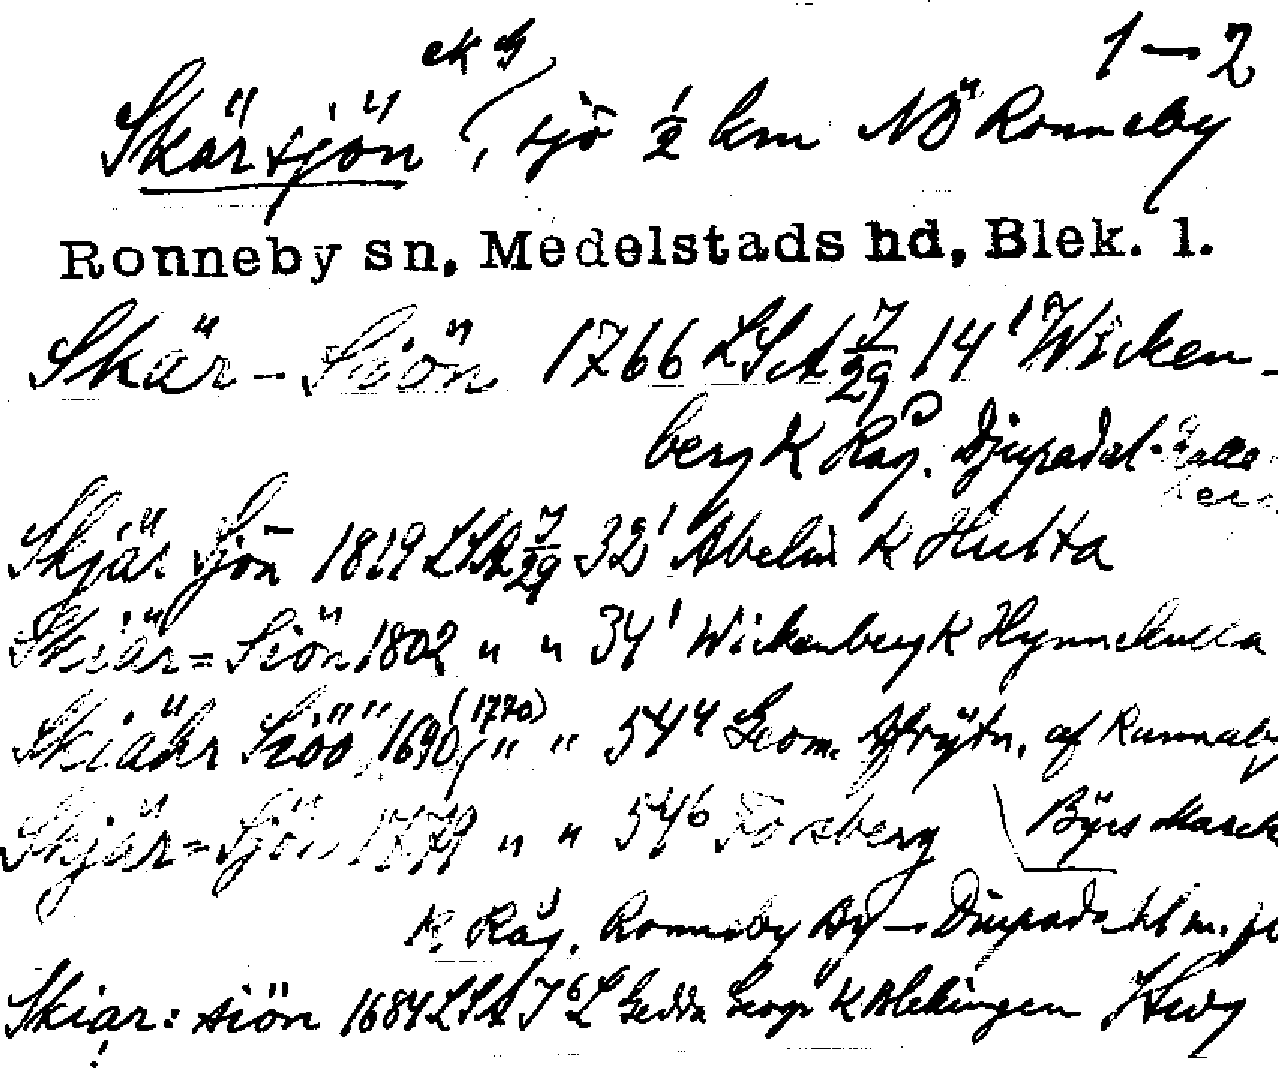 ek G 1-2
Skärsjön, sjö ½ km NÖ Ronneby
Ronneby sn, Medelstads hd, Blek. l.
Skär-Siön 1766 LSA J/29 14¹ Wicken-
berg K Råg. Djupadal-
Skjär Sjön 1819 LSA J/29 32¹ Abelin K Hulta
Skiär=Siön 1802 " " 34¹ Wickenberg K Hynnekulla
Skiähr Siöö 1690 (1770) " " 54⁴ Geom. Afrijtn. af Runnaby
Skjär=Sjön 1779 " " 54⁶ Forsberg Byis Marck
K. Råg. Ronneby By - Diupadahl m. fl
Skiar: siön 1684 LSA J⁶ L Gedda Geogr K Blekingen